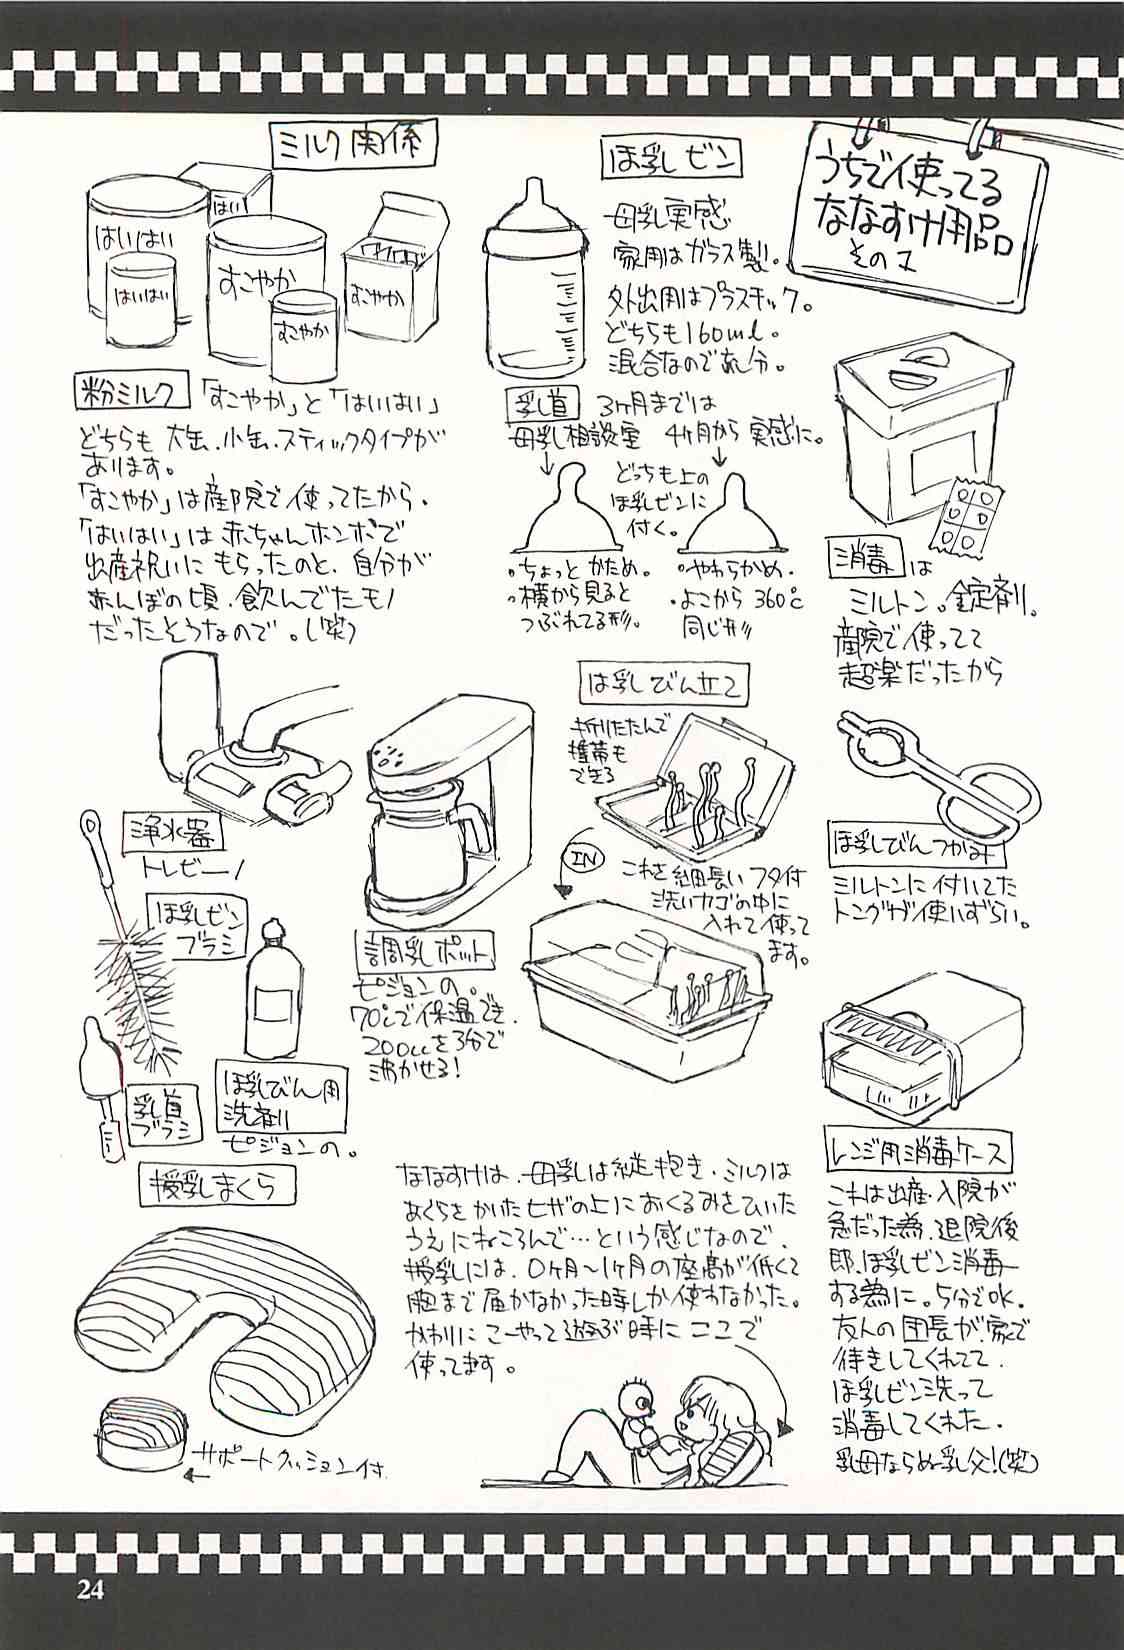 うちで使ってる
ななすけ用品
その1
ミルク関係
はいはい
はい
はいはい
すこやか
すこやか
すこやか
粉ミルク 「すこやか」と「はいはい」
どちらも大缶.小缶.スティックタイプが
あります。
「すこやか」は産院で使ってたから.
「はいはい」は赤ちゃんホンポで
出産祝いにもらったのと、自分が
赤んぼの頃.飲んでたモノ
だったそうなので。(笑)
ほ乳ビン
母乳実感
家用はガラス製。
外出用はプラスチック。
どちらも160ml。
混合なので
乳首 3ヶ月までは
母乳相談室 4ヶ月から実感に。
どっちも上の
ほ乳ビンに
付く。
・ちょっとかため。
・横から見ると
つぶれてる形。
・やわらかめ.
・よこから360℃
同じ形
消毒は
ミルトン。錠剤。
産院で使ってて
超楽だったから
ほ乳びん立て
折りたたんで
携帯も
できる
IN
これを細長いフタ付
洗いカゴの中に
入れて使って
ます。
ほ乳びんつかみ
ミルトンに付いてた
トングが使いずらい。
浄水器
トレビーノ
ほ乳ビン
ブラシ
乳首
ブラシ
ほ乳びん用
洗剤
ピジョンの。
調乳ポット
ピジョンの。
70℃で保温でき.
200ccを3分で
沸かせる!
レンジ用消毒ケース
これは出産.入院が
急だった為.退院後
即.ほ乳ビン消毒
する為に。5分でOK.
友人の団長が.家で
待きしてくれてて.
ほ乳ビン洗って
消毒してくれた.
乳母ならぬ乳父!(笑)
授乳まくら
サポートクッション付
ななすけは.母乳は縦抱き.ミルクは
あぐらをかいたヒザの上におくるみをひいた
うえにねころんで…という感じなので.
授乳には.0ヶ月〜1ヶ月の座高が低くて
胸まで届かなかった時しか使わなかった。
かわりにこーやって遊ぶ時にここで
使ってます。
24